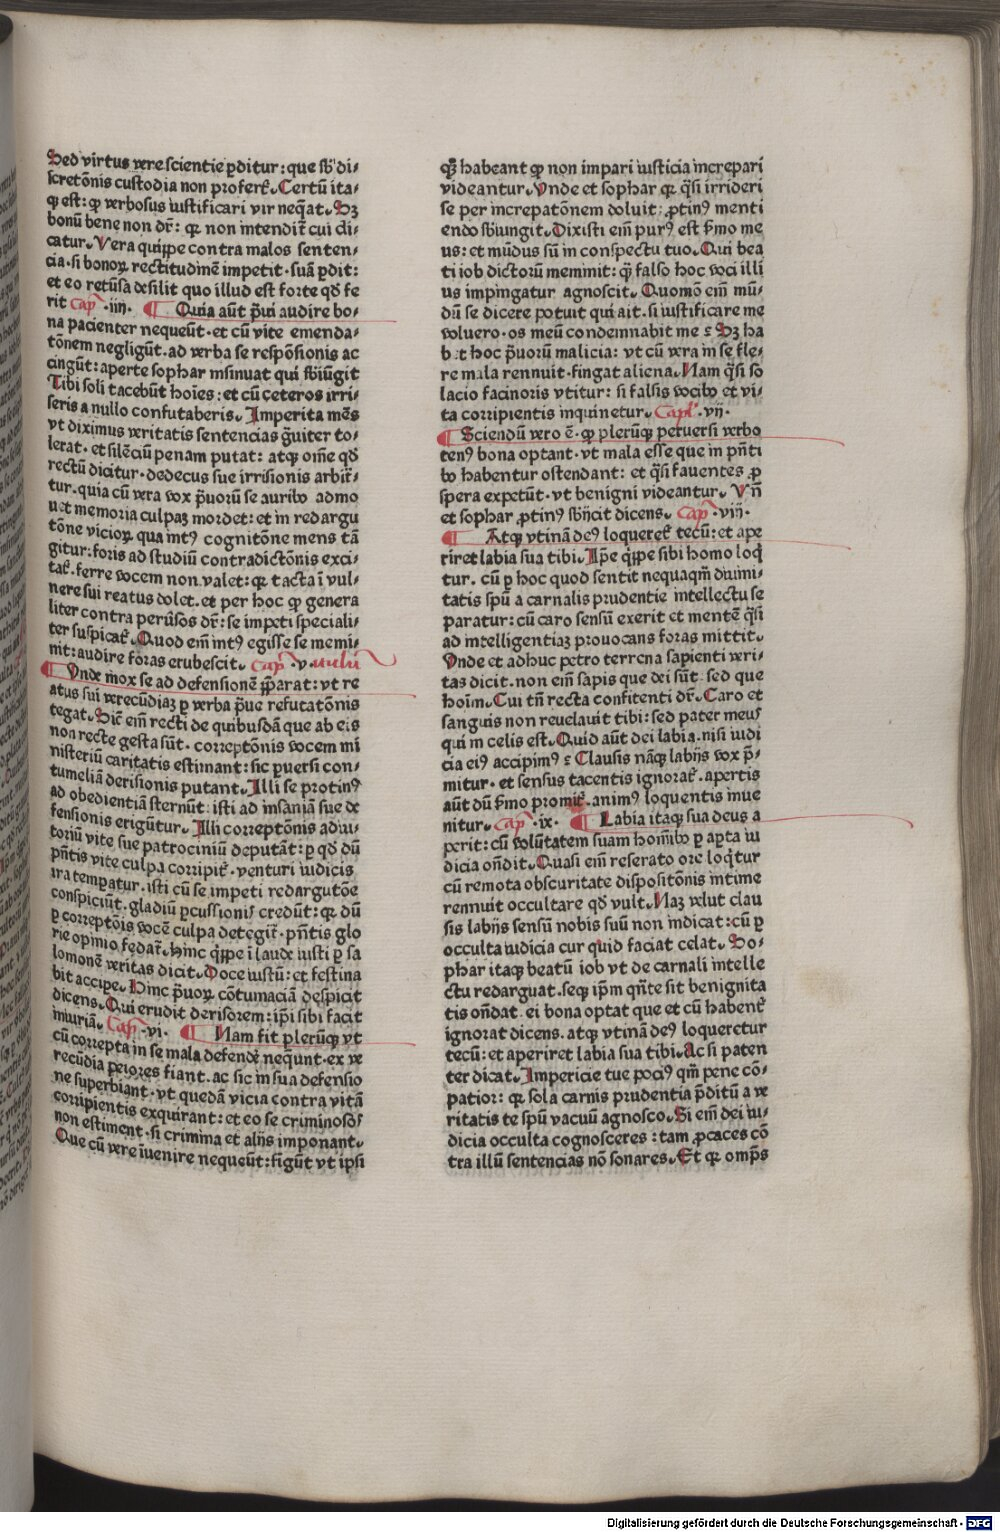 Sed virtus vere scientie ꝑditur: que sb̅ di⸗
scretōnis custodia non profert᷑. Certū ita⸗
qꝫ est: ꝙ verbosus iustificari vir neq̄at. Sꝫ
bonū bene non dr̄: qꝛ non intendit᷑ cui di⸗
catur. Vera quippe contra malos senten⸗
cia. si bonoꝝ rectitudinē impetit. suā ꝑdit:
et eo retūsa desilit quo illud est forte qd̄ fe
rit Capᵐ .iiii. ¶ Quia aūt p̄ui audire bo⸗
na pacienter nequeūt. et cū vite emenda⸗
tōnem negligūt. ad verba se respōsionis ac
cingūt: aperte sophar insinuat qui sb̄iūgit
Tibi soli tacebūt hoīes: et cū ceteros irri⸗
seris a nullo confutaberis. Imperita mēs
vt diximus veritatis sentencias ḡuiter to⸗
lerat. et silēciū penam putat: atqꝫ om̄e qd̄
rectū dicitur. dedecus sue irrisionis arbit᷑⸗
tur. quia cū vera vox p̄uorū se auribꝰ admo
uet memoria culpaꝫ mordet: et in redargu
tōne vicioꝝ qua intꝰ cognitōne mens tā
gitur: foris ad studiū contradictōnis exci⸗
tat᷑. ferre vocem non valet: qꝛ tacta ī vul⸗
nere sui reatus dolet. et per hoc ꝙ genera
liter contra peruſos dr̄: se impeti speciali⸗
ter suspicat᷑. Quod em̄ intꝰ egisse se memi⸗
nit: audire foras erubescit. Capᵐ .v.
¶ Vnde mox se ad defensionē p̄parat: vt re
atus sui verecūdiaꝫ ꝑ verba p̄ue refutatōnis
tegat. Sic̄ em̄ recti de quibusdā que ab eis
non recte gesta sūt. correptōnis vocem mi
nisteriū caritatis estimant: sic ꝑuersi con⸗
tumeliā derisionis putant. Illi se protinꝰ
ad obedientiā sternūt: isti ad insaniā sue de
fensionis erigūtur. Illi correptōnis adiu⸗
toriū vite sue patrociniū deputāt: ꝑ qd̄ dū
pn̄tis vite culpa corripit᷑. venturi iudicis
ira temperatur. isti cū se impeti redargutōe
conspiciūt. gladiū ꝑcussionis credūt: qꝛ dū
ꝑ correptōis vocē culpa detegit᷑. pn̄tis glo
rie opinio fedat᷑. hinc q̄ppe ī laude iusti ꝑ sa
lomonē veritas dicit. Doce iustū: et festina
bit accipe. Hinc p̄uoꝝ cōtumaciā despicit
dicens. Qui erudit derisorem: ip̄i sibi facit
iniuriā. Capᵐ .vi. ¶ Nam fit plerūqꝫ vt
cū correpta in se mala defendē neq̄unt. ex ve
recūdia peiores fiant. ac sic in sua defensio
ne superbiant. vt quedā vicia contra vitā
corripientis exquirant: et eo se criminosos
non estiment. si crimina et aliis imponant.
Que cū vere īuenire nequeūt: fīgūt vt ipsi
qꝫ habeant ꝙ non impari iusticia increpari
videantur. Vnde et sophar qꝛ q̄si irrideri
se per increpatōnem doluit: ꝓtinꝰ menti
endo sb̄iungit. Dixisti em̄ purꝰ est ẜmo me
us: et mūdus sū in conspectu tuo. Qui bea
ti iob dictorū meminit: q̄ falso hoc voci illi
us impingatur agnoscit. Quomō em̄ mū⸗
dū se dicere potuit qui ait. si iustificare me
voluero. os meū condemnabit me ꝛ Sꝫ ha
bet hoc p̄uorū malicia: vt cū vera in se fle⸗
re mala rennuit. fingat aliena. Nam q̄si so
lacio facinoris vtitur: si falsis vocibꝰ et vi⸗
ta corripientis inquinetur. Capᵐ .vij.
¶ Sciendū vero ē. ꝙ plerūqꝫ peruersi verbo
tenꝰ bona optant. vt mala esse que in pn̄ti
bꝰ habentur ostendant: et q̄si fauentes ꝓ
spera expetūt. vt benigni videantur. Vn̄
et sophar ꝓtinꝰ sb̄ijcit dicens. Capᵐ .viij.
¶ Atqꝫ vtinā deꝰ loqueret᷑ tecū: et ape
riret labia sua tibi. Ip̄e q̄ppe sibi homo loq̄
tur. cū ꝑ hoc quod sentit nequaqm̄ diuini⸗
tatis sp̄u a carnalis prudentie intellectu se
paratur: cū caro sensū exerit et mentē q̄si
ad intelligentiaꝫ prouocans foras mittit.
Vnde et adhuc petro terrena sapienti veri⸗
tas dicit. non em̄ sapis que dei sūt. sed que
hoīm. Cui tn̄ recta confitenti dr̄. Caro et
sanguis non reuelauit tibi: sed pater meus
qui in celis est. Quid aūt dei labia. nisi iudi
cia eiꝰ accipimꝰ ꝛ Clausis nāqꝫ labijs vox p̄⸗
mitur. et sensus tacentis ignorat᷑. apertis
aūt dū ẜmo promit᷑. animꝰ loquentis inue
nitur. Capᵐ .ix. ¶ Labia itaqꝫ sua deus a
perit: cū volūtatem suam hom̄ibꝰ ꝑ apta iu
dicia on̄dit. Quasi em̄ reserato ore loq̄tur
cū remota obscuritate dispositōnis intime
rennuit occultare qd̄ vult. Naꝫ velut clau
sis labijs sensū nobis suū non indicat: cū ꝑ
occulta iudicia cur quid faciat celat. So⸗
phar itaqꝫ beatū iob vt de carnali intelle
ctu redarguat. seqꝫ ip̄m qn̄te sit benignita
tis on̄dat. ei bona optat que et cū habent᷑
ignorat dicens. atqꝫ vtinā deꝰ loqueretur
tecū: et aperiret labia sua tibi. Ac si paten
ter dicat. Impericie tue pociꝰ qm̄ pene cō⸗
patior: qꝛ sola carnis prudentia p̄ditū a ve
ritatis te sp̄u vacuū agnosco. Si em̄ dei iu⸗
dicia occulta cognosceres: tam ꝓcaces cō
tra illū sentencias nō sonares. Et qꝛ omp̄s
Digitalisierung gefördert durch die Deutsche Forschungsgemeinschaft - DFG